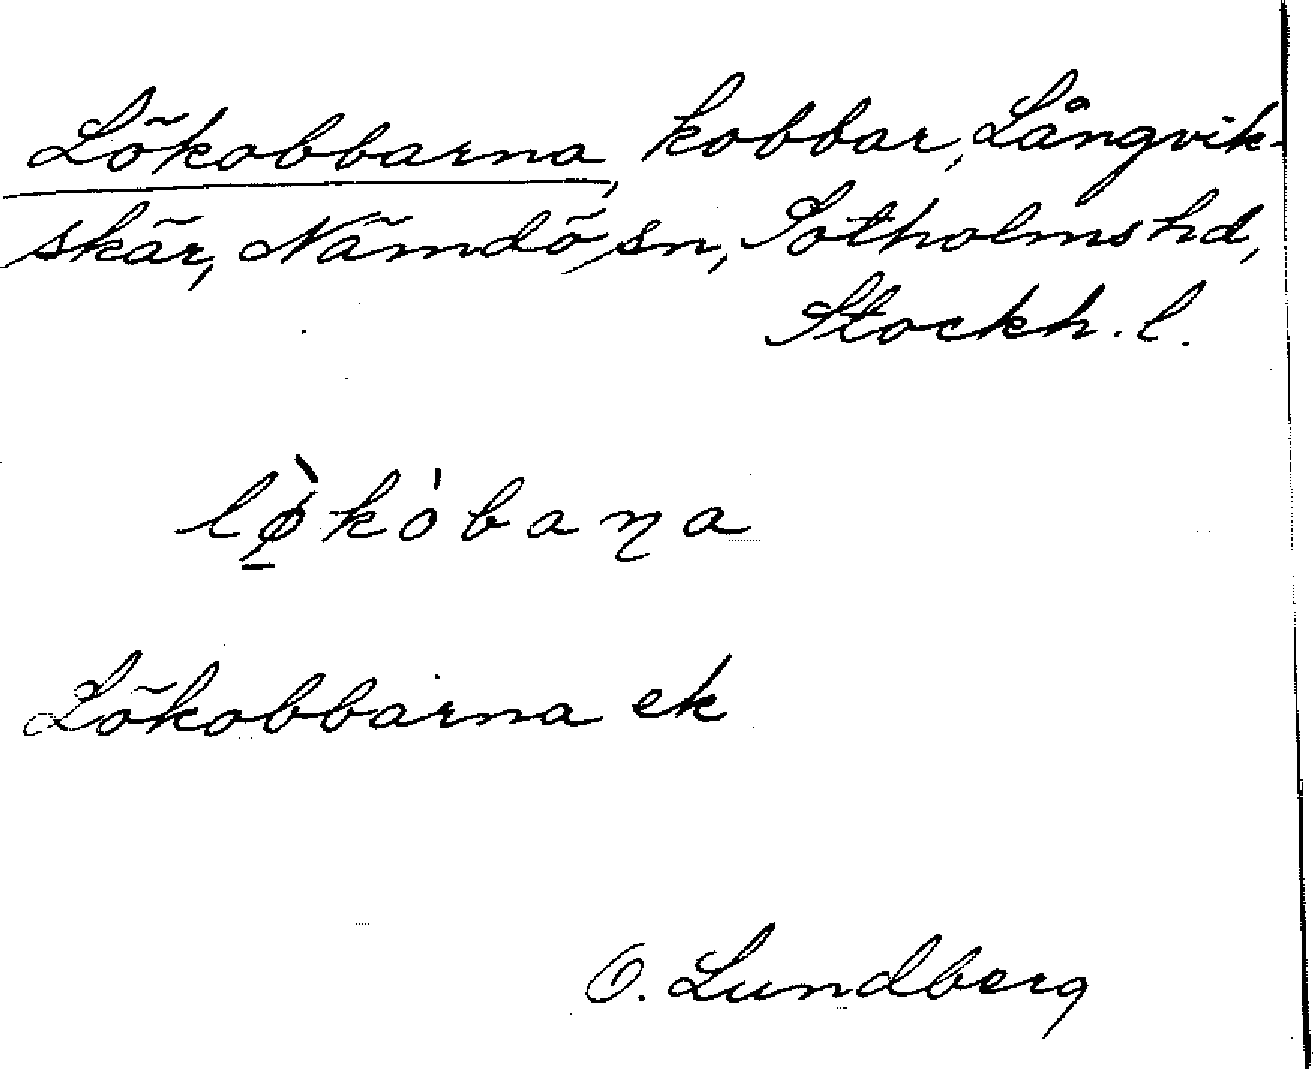 Lökobbarna, kobbar, Långvik-
skär, Nämdö sn, Sotholms hd,
Stockh. l.
lø̱̀kòbaɳa
Lökobbarna ek
O. Lundberg